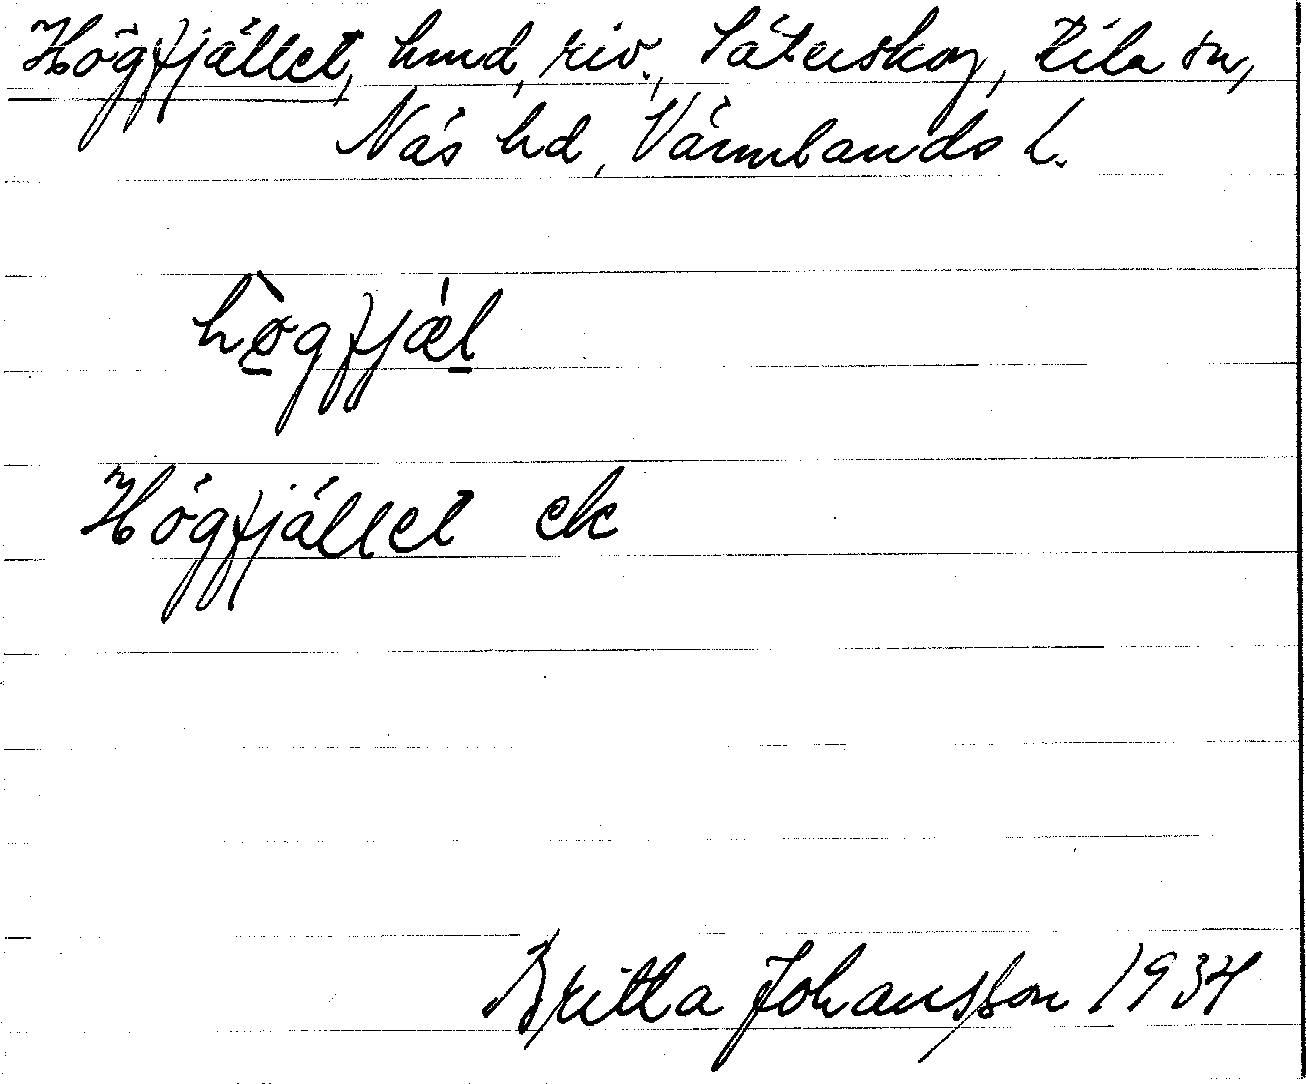 Högfjället, hmd, riv., Säterskog, Kila sn,
Näs hd, Värmlands l.
hø̀gfjæ̀l
Högfjället ek
Britta Johansson 1934